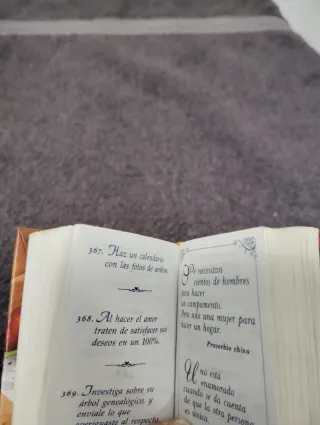 367. Haz un calendario
con las fotos de ambos.
368. Al hacer el amor
traten de satisfacer sus
deseos en un 100%.
369. Investiga sobre su
árbol genealógico, y
envíale lo que
averiguaste al respecto.
Se necesitan
cientos de hombres
para hacer
un campamento.
Pero solo una mujer para
hacer un hogar.
Proverbio chino
Uno está
enamorado
cuando se da cuenta
de que la otra persona
es única.